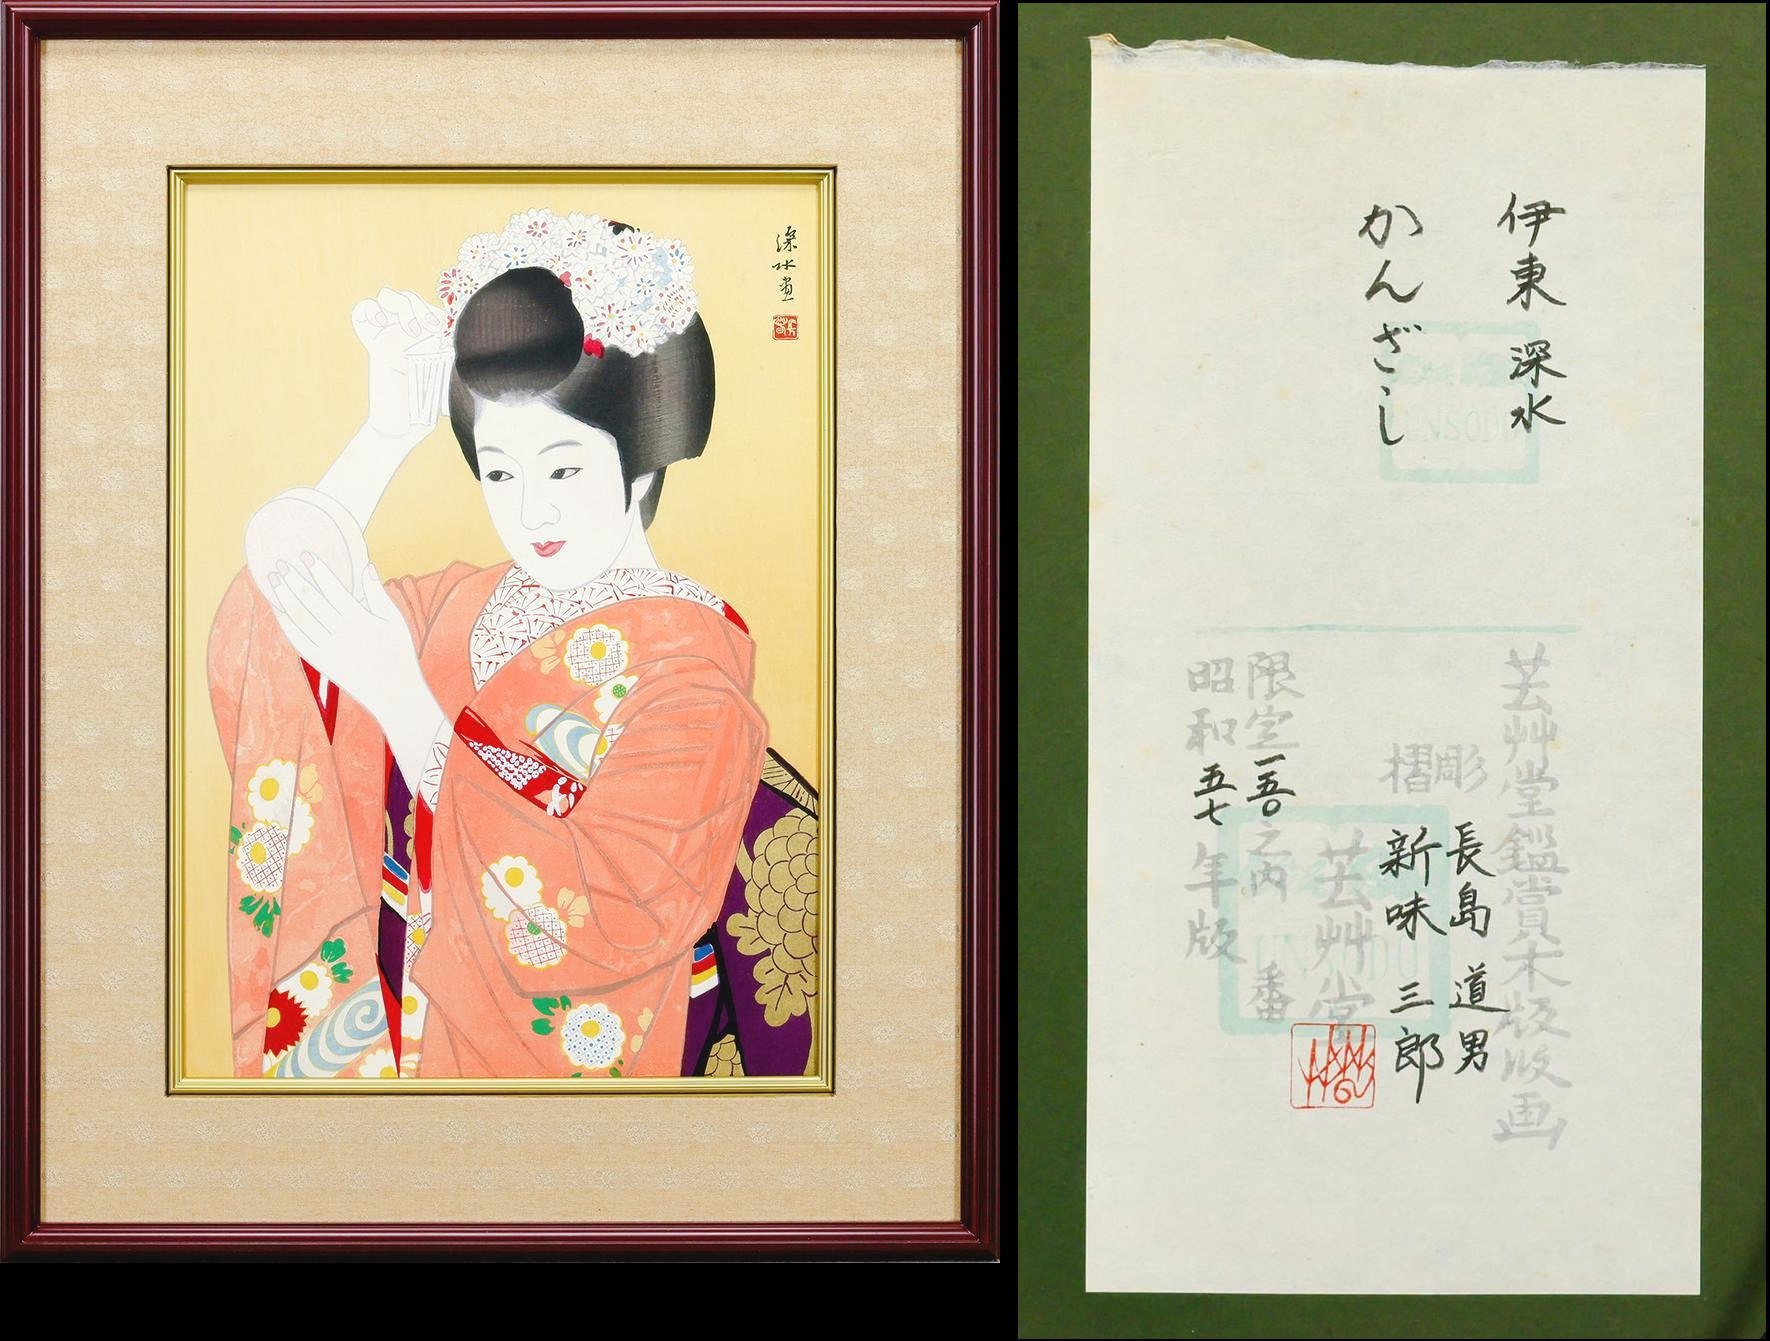 深水画
伊東 深水
かんざし
芸艸堂鑑賞木版版画
彫 長島 道男
摺 新味 三郎
芸艸堂
限定一五〇之内 番
昭和五七年版